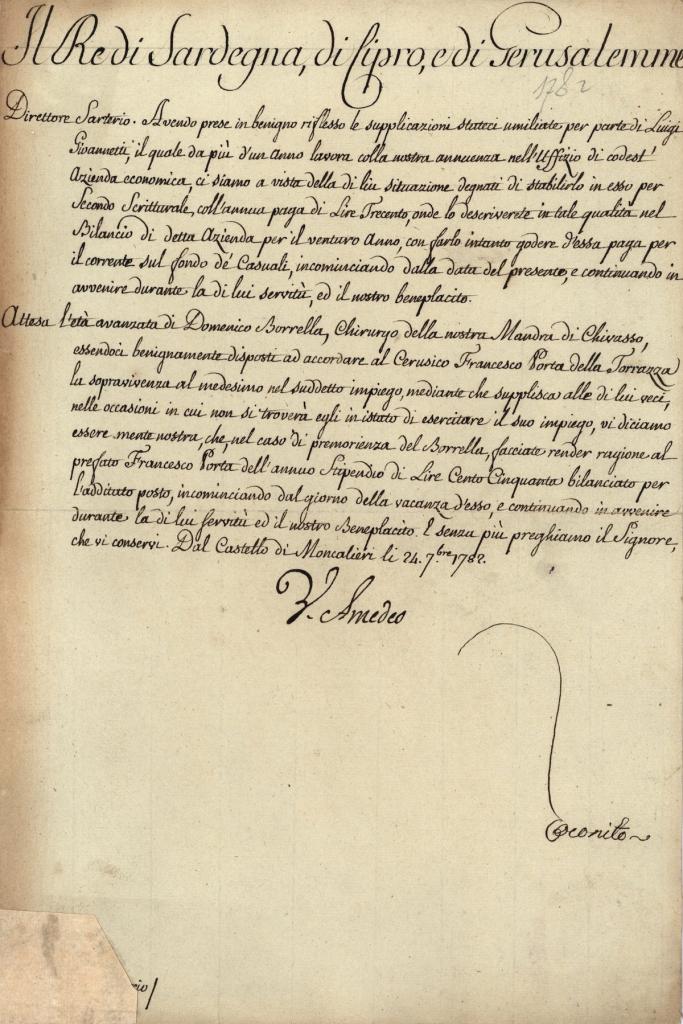 Il Re di Sardegna, di Cipro, e di Gerusalemme
1782
Direttore Sarterio. Avendo prese in benigno riflesso le supplicazioni stateci umiliate per parte di Luigi
Givannetti, il quale da più d'un anno lavora colla nostra annuenza nell'Uffizio di codest'
Azienda economica, ci siamo a vista della di lui situazione degnati di stabilirlo in esso per
Secondo Scritturale, coll'annua paga di Lire Trecento, onde lo descriverete in tale qualità nel
Bilancio di detta Azienda per il venturo Anno, con farlo intanto godere d'essa paga per
il corrente sul fondo de' Casuali, incominciando dalla data del presente, e continuando in
avvenire durante la di lui servitù, ed il nostro beneplacito.
Attesa l'età avanzata di Domenico Borrella, Chirurgo della nostra Mandra di Chivasso,
essendoci benignamente disposti ad accordare al Cerusico Francesco Porta della Torrazza
la sopravivenza al medesimo nel suddetto impiego, mediante che supplisca alle di lui veci,
nelle occasioni in cui non si troverà egli in istato di esercitare il suo impiego, vi diciamo
essere mente nostra, che, nel caso di premorienza del Borrella, facciate render ragione al
prefato Francesco Porta dell'annuo Stipendio di Lire Cento Cinquanta bilanciato per
l'additato posto, incominciando dal giorno della vacanza d'esso, e continuando in avvenire
durante la di lui servitù ed il nostro Beneplacito. E senza più preghiamo il Signore,
che vi conservi. Dal Castello di Moncalieri li 24. 7.bre 1782.
V. Amedeo